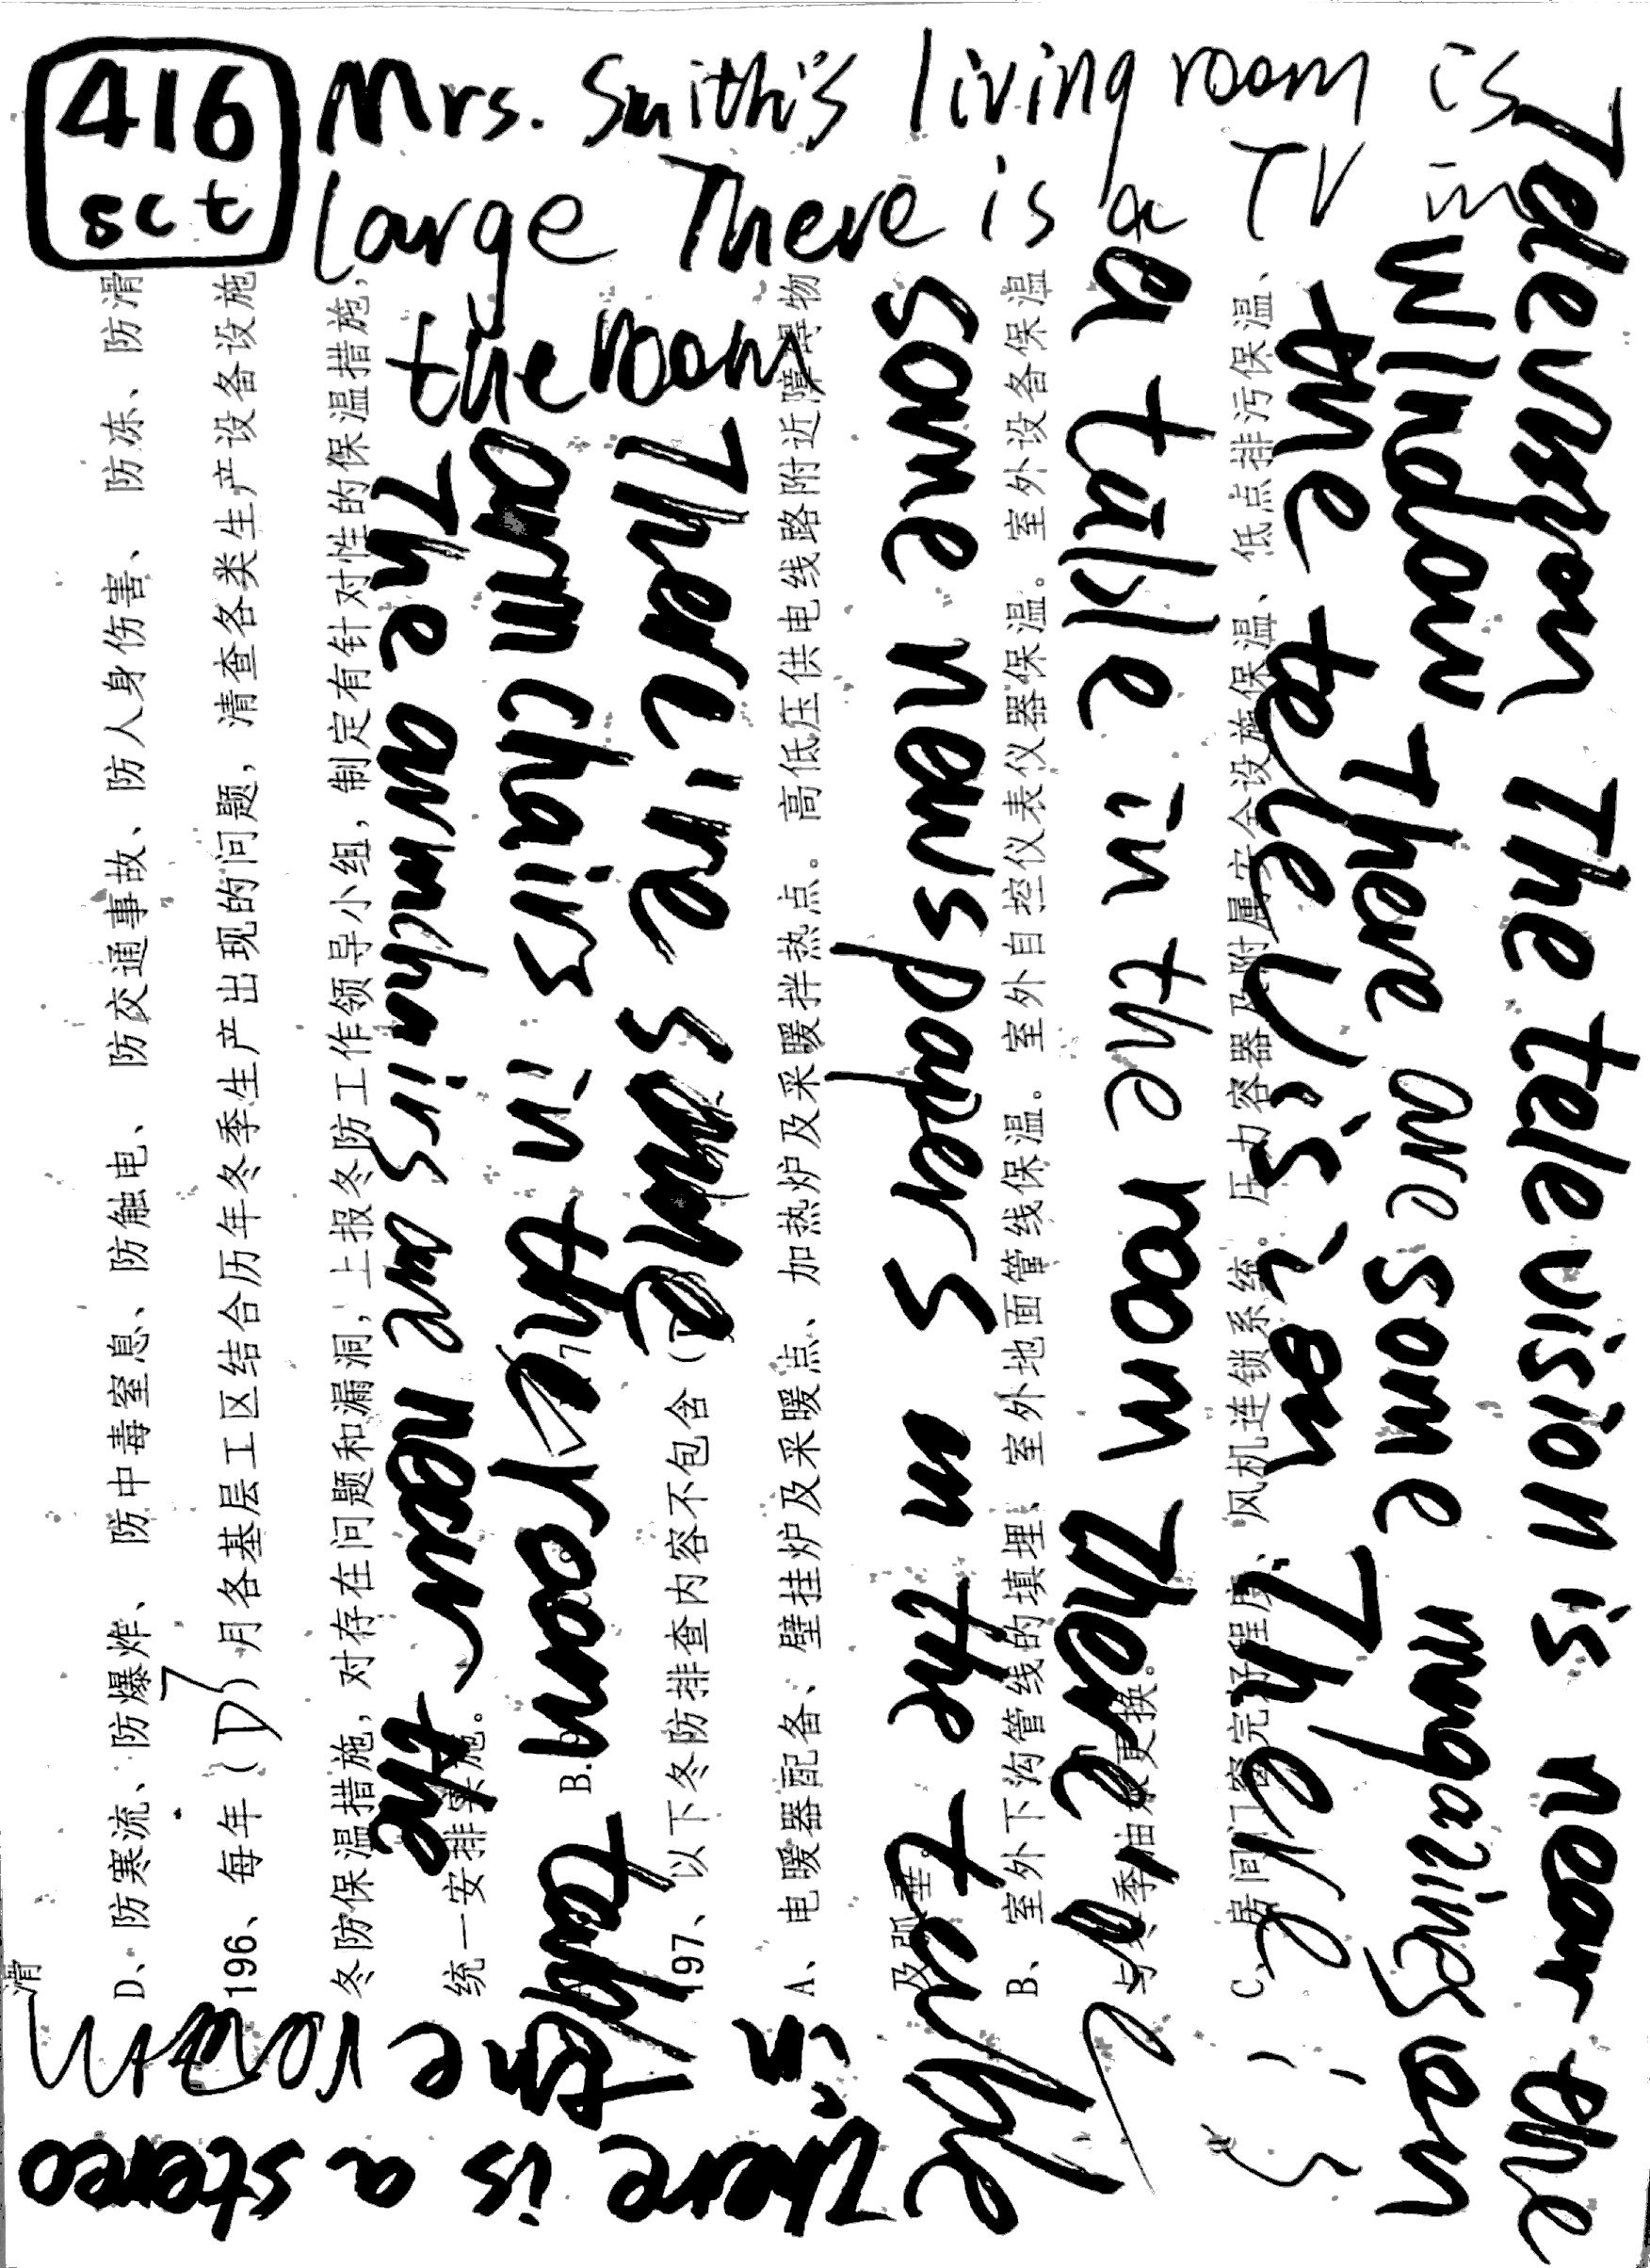 416
sct
Mrs. Smith's living room is
large There is a TV in
the room
Television The television is near the
window There are some magazines on
the television
a table in the room There is
some newspapers on the table
There are some
armchairs in the room
The armchairs are near the
table
There is a stereo
in the
滑
D、防寒流、防爆炸、防中毒窒息、防触电、防交通事故、防人身伤害、防冻、防滑
196、每年（D）月各基层工区结合历年冬季生产出现的问题，清查各类生产设备设施
冬防保温措施，对存在问题和漏洞，上报冬防工作领导小组，制定有针对性的保温措施，
统一安排实施。
B.
197、以下冬防排查内容不包含（
A、电暖器配备、壁挂炉及采暖点、加热炉及采暖拌热点。高低压供电线路附近障碍物
及弧垂。
B、室外下沟管线的填埋、室外地面管线保温。室外自控仪表仪器保温。室外设备保温
与冬季油水更换。
C、房间门窗完好程度、风机连锁系统。压力容器及附属安全设施保温、低点排污保温、